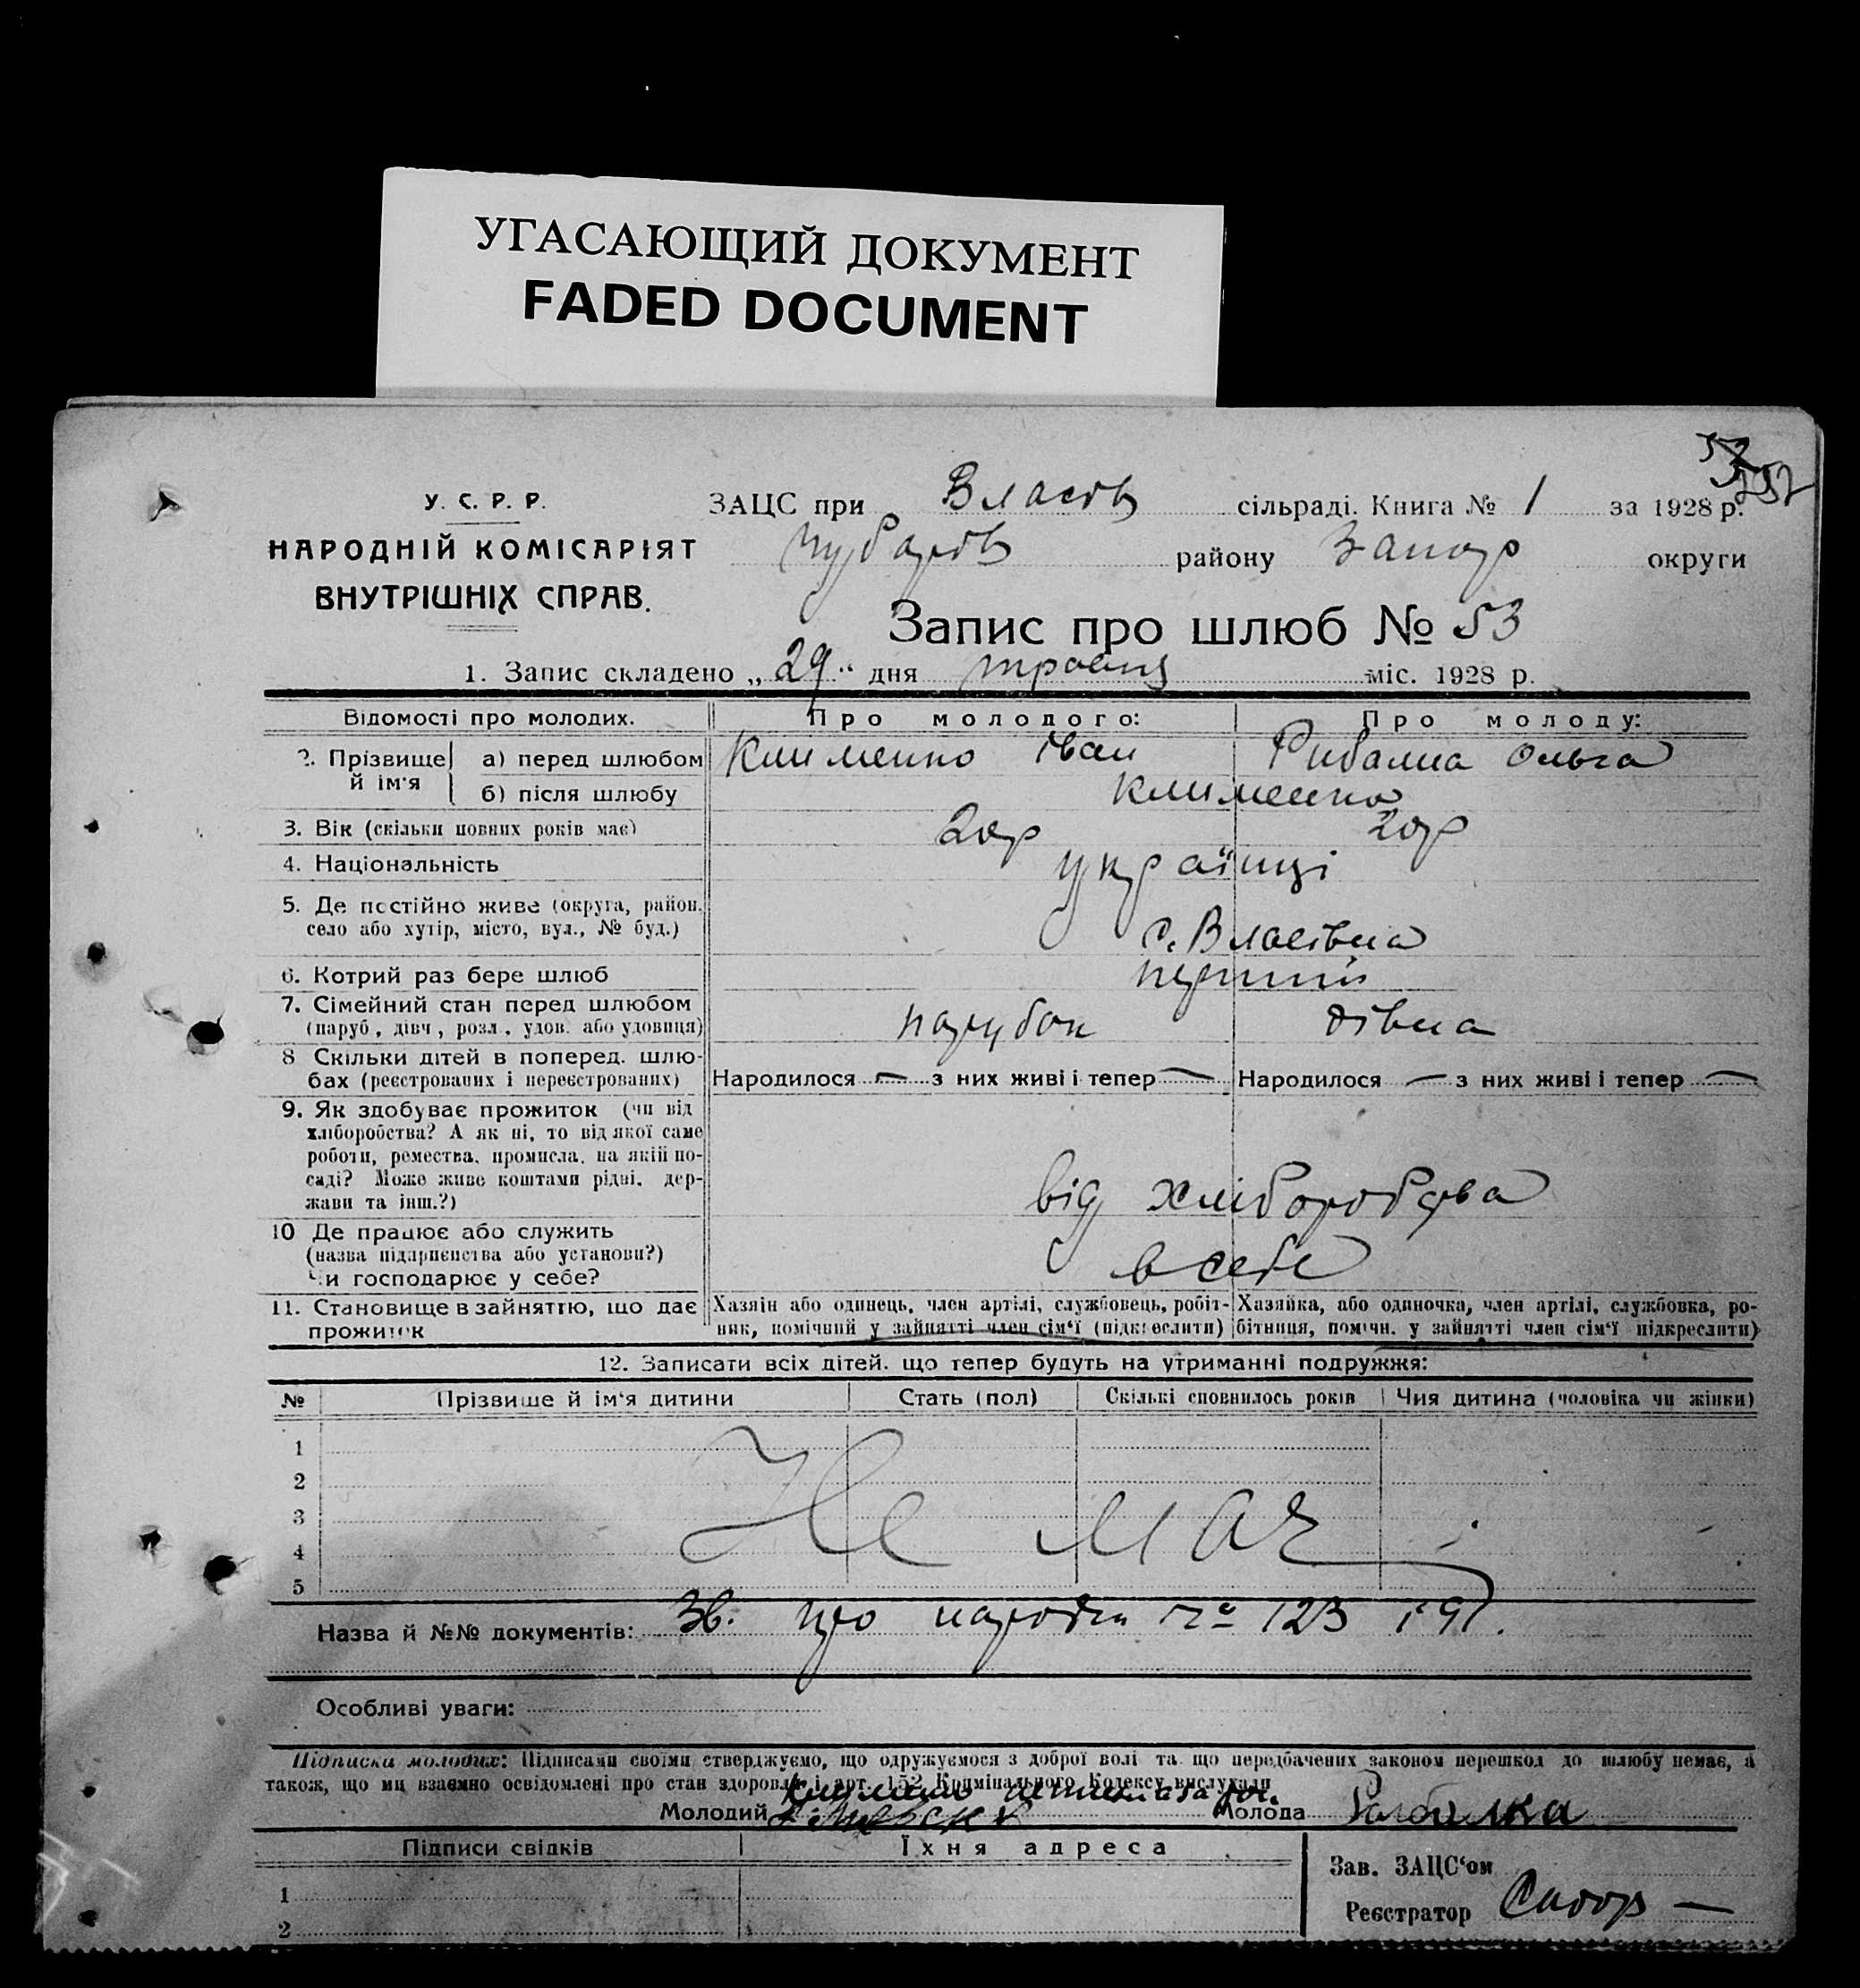 УГАСАЮЩИЙ ДОКУМЕНТ
FADED DOCUMENT
У. С. Р. Р.
НАРОДНІЙ КОМІСАРІЯТ
ВНУТРІШНІХ СПРАВ.
ЗАЦС при Власів сільраді. Книга № 1 за 1928 р.
району Запор округи
Запис про шлюб № 53
1. Запис складено „29“ дня травня міс. 1928 р.
Відомості про молодих. Про молодого: Про молоду:
2. Прізвище й ім'я а) перед шлюбом Клименко Іван Рибалка Ольга
б) після шлюбу Клименко
3. Вік (скільки повних років має) 20 р 20 р
4. Національність українці
5. Де постійно живе (округа, район, село або хутір, місто, вул., № буд.) с. Власівка
6. Котрий раз бере шлюб перший
7. Сімейний стан перед шлюбом
(паруб., дівч., розл., удов. або удовиця) парубок дівка
8 Скільки дітей в поперед. шлю-
бах (реєстрованих і нереєстрованих) Народилося — з них живі і тепер — Народилося — з них живі і тепер —
9. Як здобуває прожиток (чи від
хліборобства? А як ні, то від якої саме
роботи, ремества, промисла, на якій по-
саді? Може живе коштами рідні, дер-
жави та інш.?) від хліборобства
10 Де працює або служить
(назва підприємства або установи?)
Чи господарює у себе? в себе
11. Становище в зайняттю, що дає
прожиток
Хазяін або одинець, член артілі, службовець, робіт-
ник, помічний у зайнятті член сім'ї (підкреслити)
Хазяйка, або одиночка, член артілі, службовка, ро-
бітниця, поміч. у зайнятті член сім'ї підкреслити)
12. Записати всіх дітей, що тепер будуть на утриманні подружжя:
№ Прізвище й ім'я дитини Стать (пол) Скількі сповнилось років Чия дитина (чоловіка чи жінки)
1
2
3
4
5
Не має
Назва й №№ документів: Зв. про народж № 123 і 91.
Особливі уваги:
Підписка молодих: Підписами своїми стверджуємо, що одружуємося з доброї волі та що передбачених законом перешкод до шлюбу немає, а
також, що ми взаємно освідомлені про стан здоровля і арт. 152 Кримінального Кодексу вислухали
Молодий Молода Рибалка
Підписи свідків Їхня адреса
1
2
Зав. ЗАЦС'ом
Реєстратор